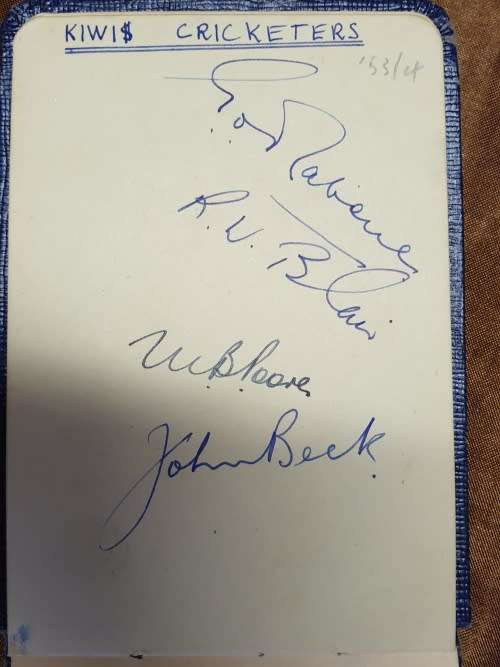 KIWI$ CRICKETERS
'53/4
Geoff Rabone
R. W. Blair
M. B. Poore
John Beck